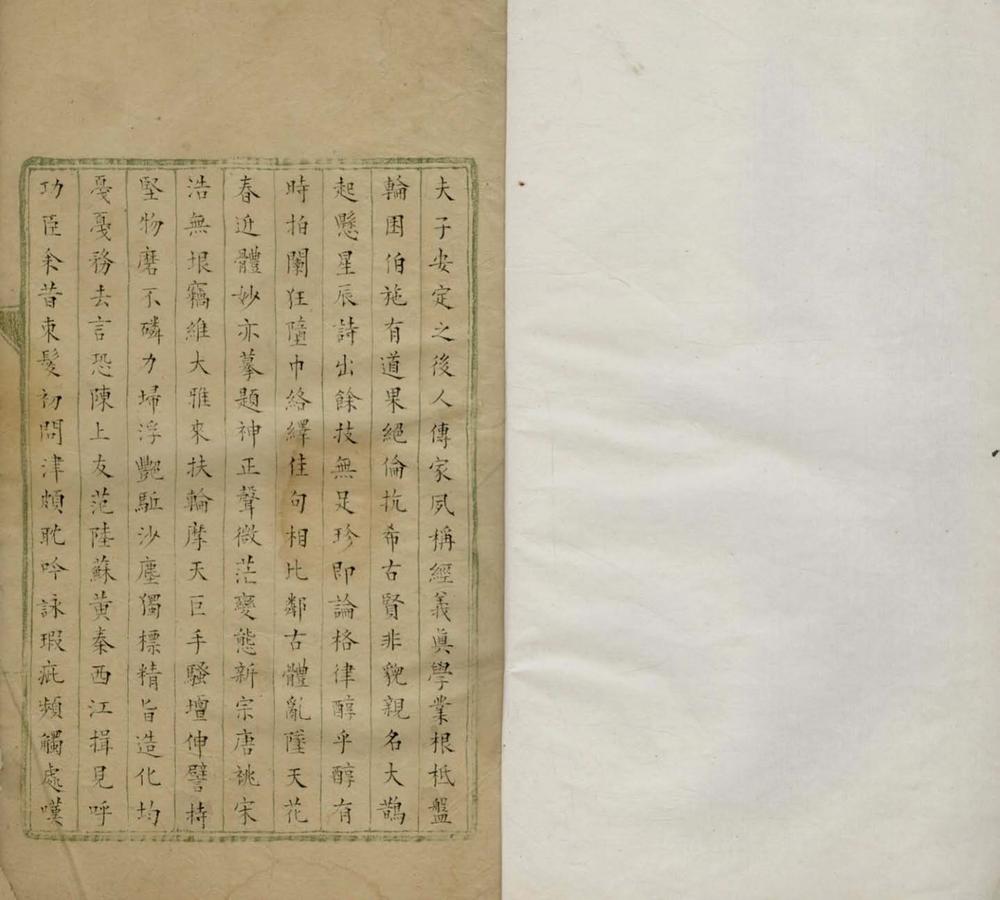 夫子安定之後人傳家夙稱經義真學業根柢盤
輪囷伯施有道果絕倫抗希古賢非貌親名大鵲
起懸星辰詩出餘技無足珍即論格律醇乎醇有
時拍闌狂墮巾絡繹佳句相比鄰古體亂墜天花
春近體妙亦摹題神正聲微茫變態新宗唐祧宋
浩無垠竊維大雅來扶輪摩天巨手騷壇伸譬持
堅物磨不磷力埽浮艷驅沙塵獨標精旨造化均
戞戞務去言恐陳上友范陸蘇黃秦西江揖見呼
功臣余昔束髮初問津頗耽吟詠瑕疵頻觸處嘆